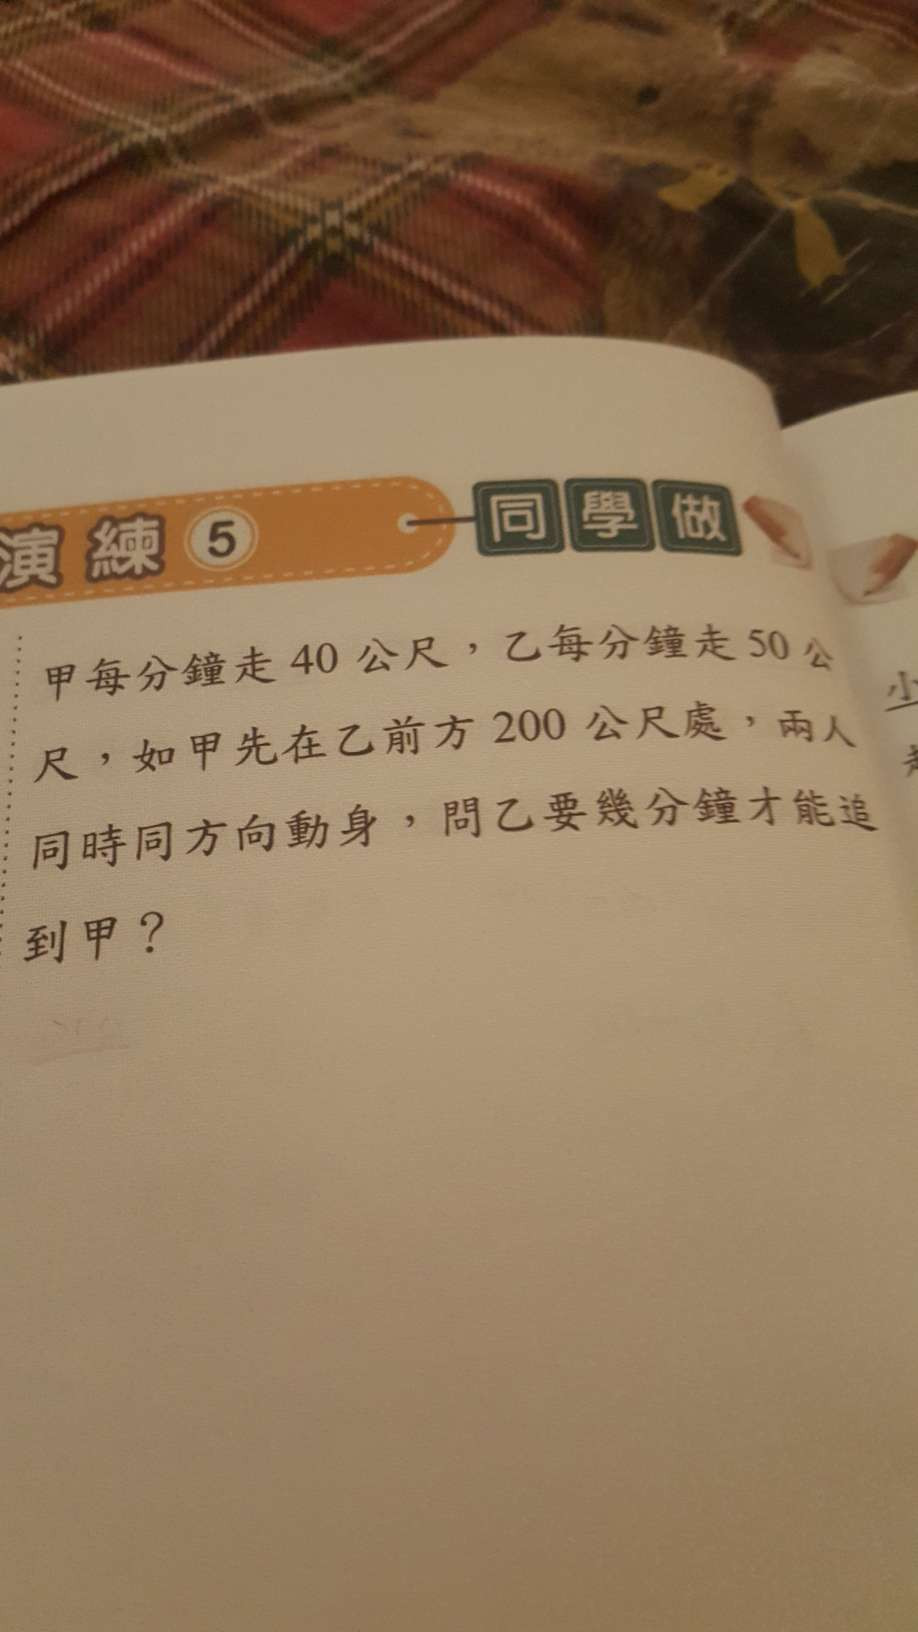 演練5 同學做
甲每分鐘走40公尺，乙每分鐘走50公
尺，如甲先在乙前方200公尺處，兩人
同時同方向動身，問乙要幾分鐘才能追
到甲？
小